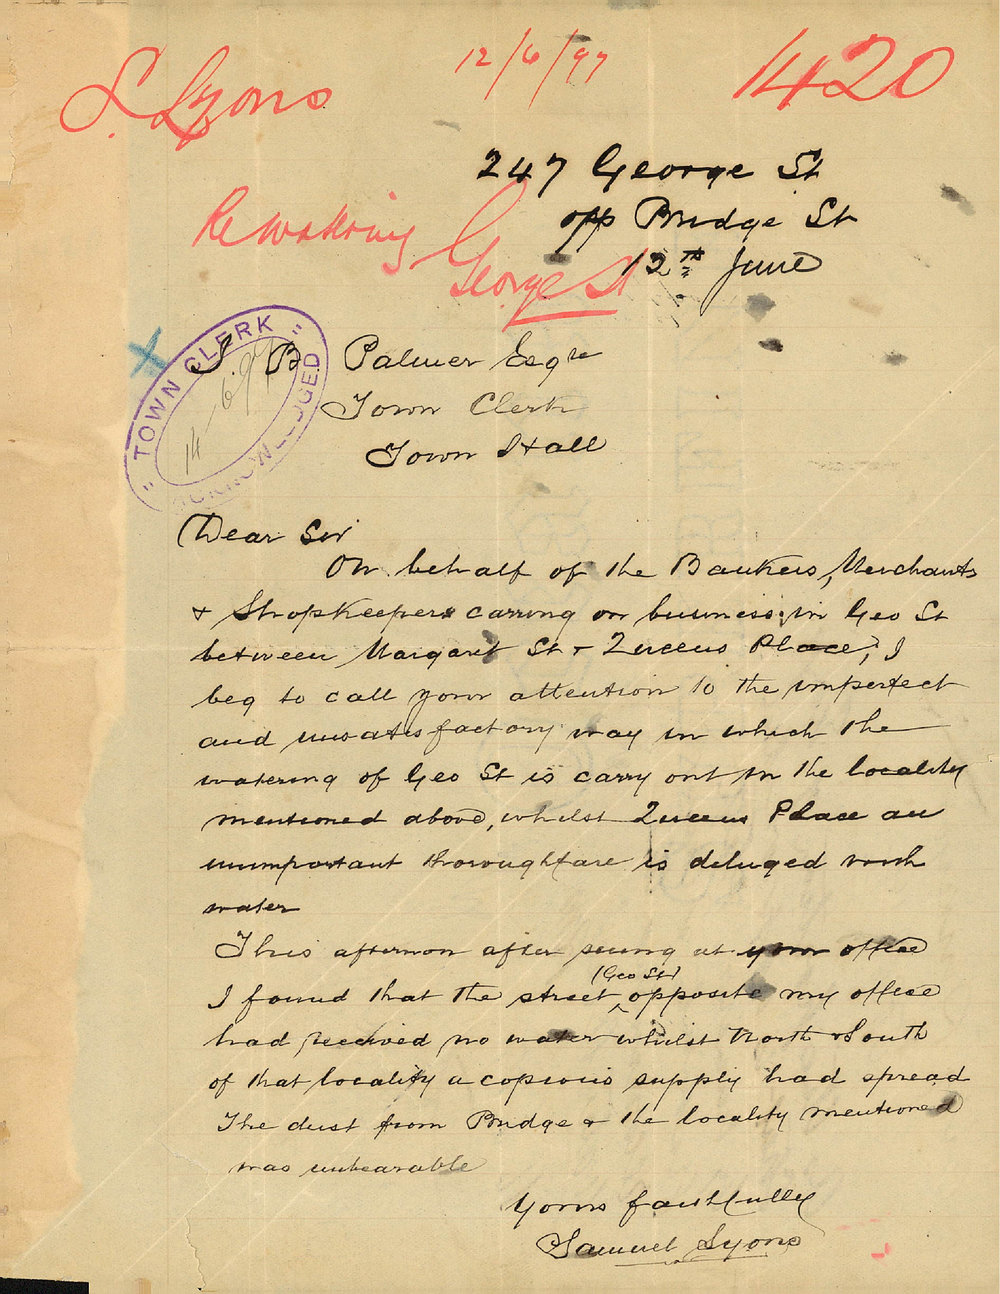 S. Lyons
12/6/97
1420
247 George St
opp Bridge St
Re watering
George St
12th June
TOWN CLERK
14 6 97
ACKNOWLEDGED
J B Palmer Esqre
Town Clerk
Town Hall
Dear Sir
On behalf of the Bankers, Merchants
+ Shopkeepers carring on business in Geo St
between Margaret St + Queens Place, I
beg to call your attention to the imperfect
and unsatisfactory way in which the
watering of Geo St is carry out in the locality
mentioned above, whilst Queens Place an
unimportant thoroughfare is deluged with
water
This afternon after seeing at your office
(Geo St)
I found that the street opposite my office
had received no water whilst North & South
of that locality a copious supply had spread
The dust from Bridge & the locality mentioned
was unbearable
Yours faithfully
Samuel Lyons